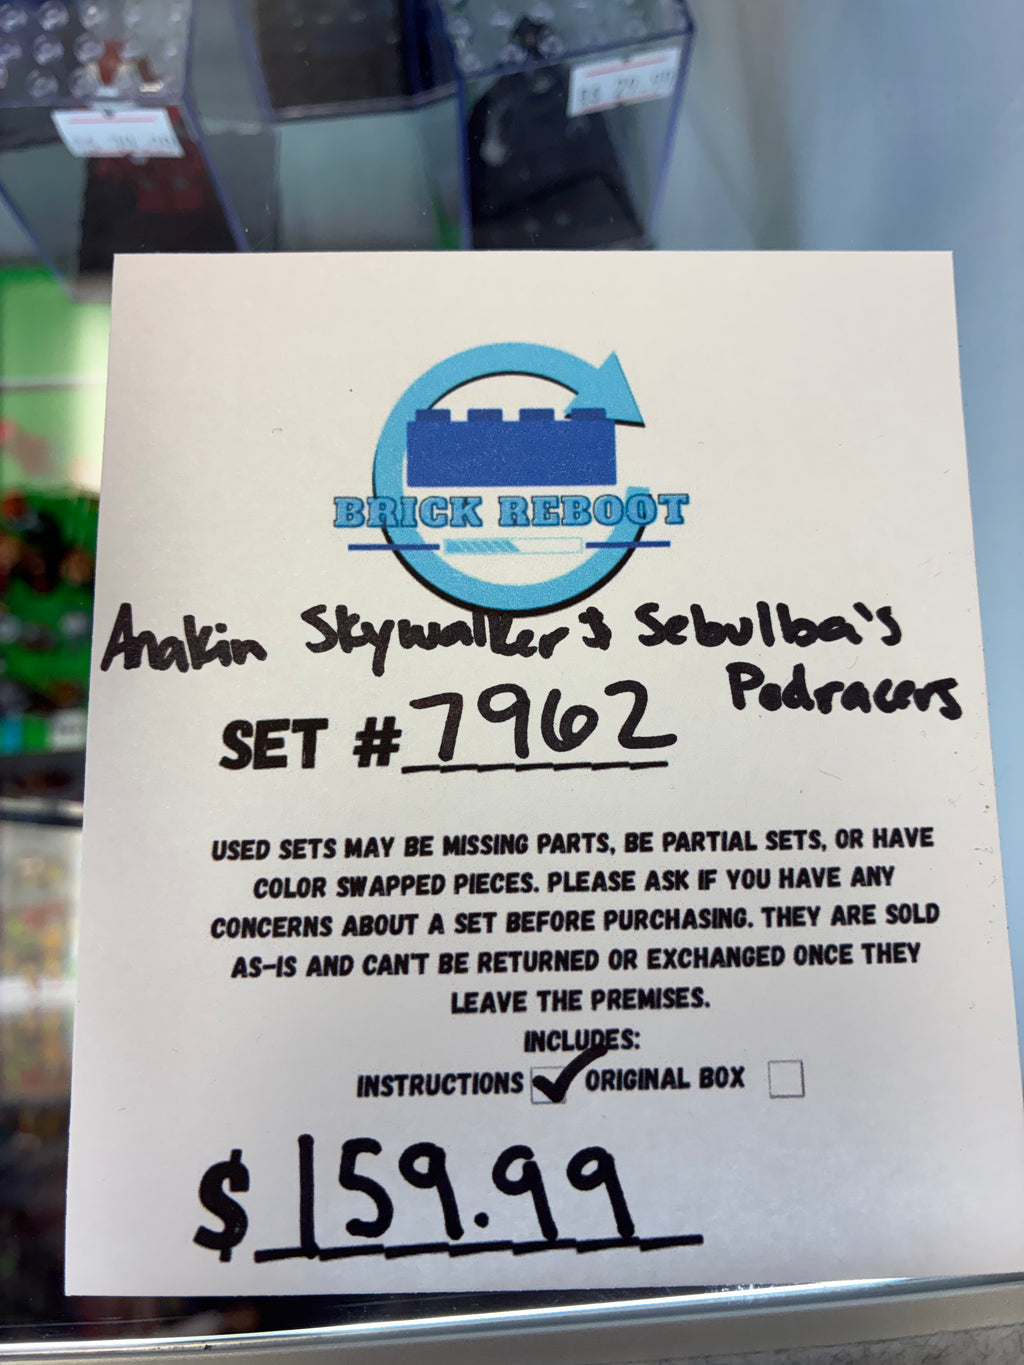 BRICK REBOOT
Anakin Skywalker & Sebulba's
Podracers
SET # 7962
USED SETS MAY BE MISSING PARTS, BE PARTIAL SETS, OR HAVE
COLOR SWAPPED PIECES. PLEASE ASK IF YOU HAVE ANY
CONCERNS ABOUT A SET BEFORE PURCHASING. THEY ARE SOLD
AS-IS AND CAN'T BE RETURNED OR EXCHANGED ONCE THEY
LEAVE THE PREMISES.
INCLUDES:
INSTRUCTIONS ORIGINAL BOX
$ 159.99